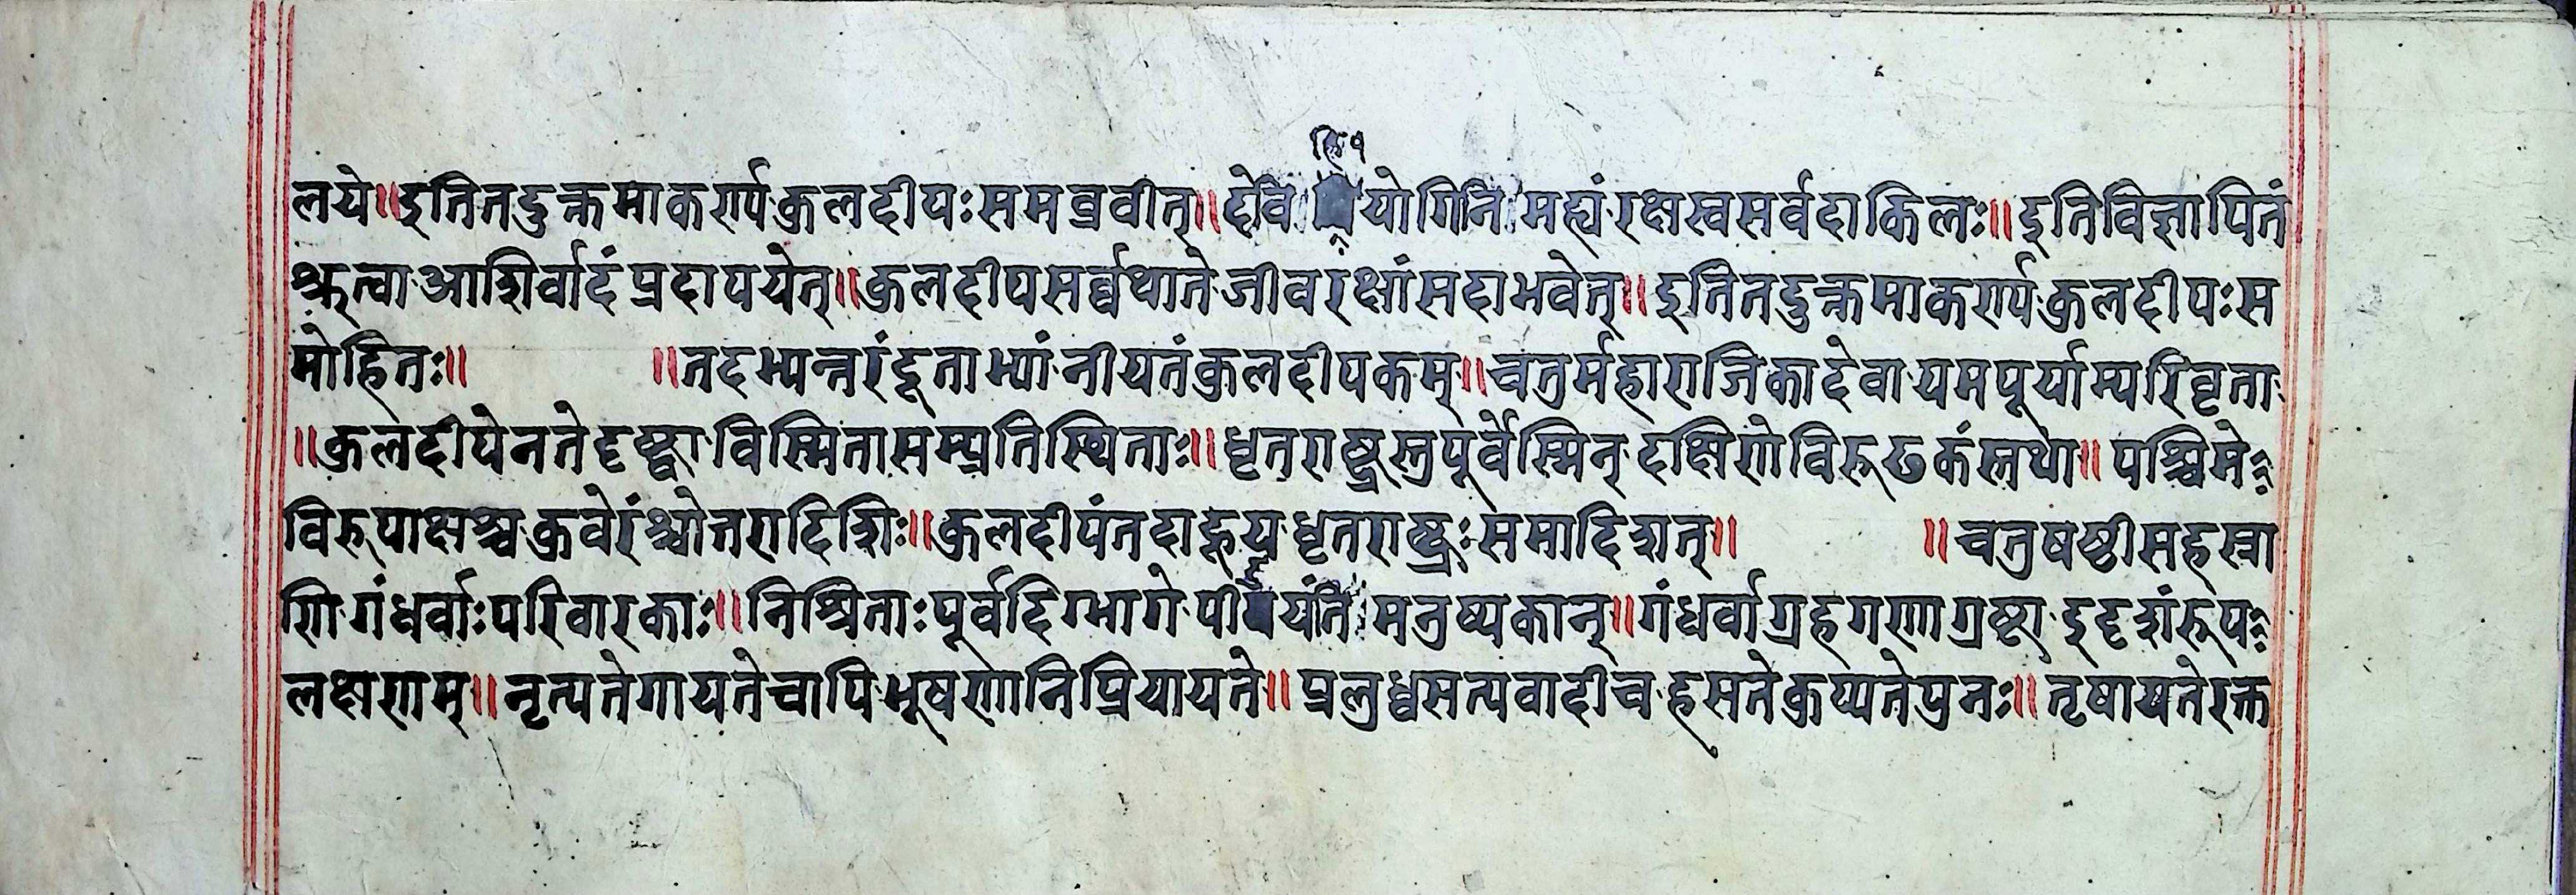 लये॥इतितदुक्तमाकर्ण्यकुलदीपःसमब्रवीत्॥देवि योगिनि मह्यंरक्षस्वसर्वदाकिलः॥इतिविज्ञापितं
श्रुत्वाआशिर्वादंप्रदापयेत्॥कुलदीपसर्व्वथातेजीवरक्षांसदाभवेत्॥इतितदुक्तमाकर्ण्यकुलदीपःस
मोहितः॥ ॥तदभ्यन्तरंदूताभ्यांनीयतंकुलदीपकम्॥चतुर्महाराजिकादेवायमपूर्याम्परिवृता
॥कुलदीपेनतेदृष्ट्वाविस्मितासम्प्रतिस्थिताः॥धृतराष्ट्रस्तुपूर्वेस्मिन्दक्षिणेविरूढकंस्तथा॥पश्चिमे
विरूपाक्षश्चकुवेरंश्चोत्तरादिशिः॥कुलदीपंतदाहूयधृतराष्ट्रःसमादिशत्॥ ॥चतुषष्ठीसहस्रा
णिगंधर्वाःपरिवारकाः॥निश्रिताःपूर्वदिग्भागेपीडयंतिमनुष्यकान्॥गंधर्वाग्रहगणाग्रष्टाइदृशंरूप
लक्षणम्॥नृत्यतेगायतेचापिभूषणानिप्रियायते॥प्रलुब्धसत्यवादीचहसतेकुप्यतेपुनः॥तृषायतेरक्त